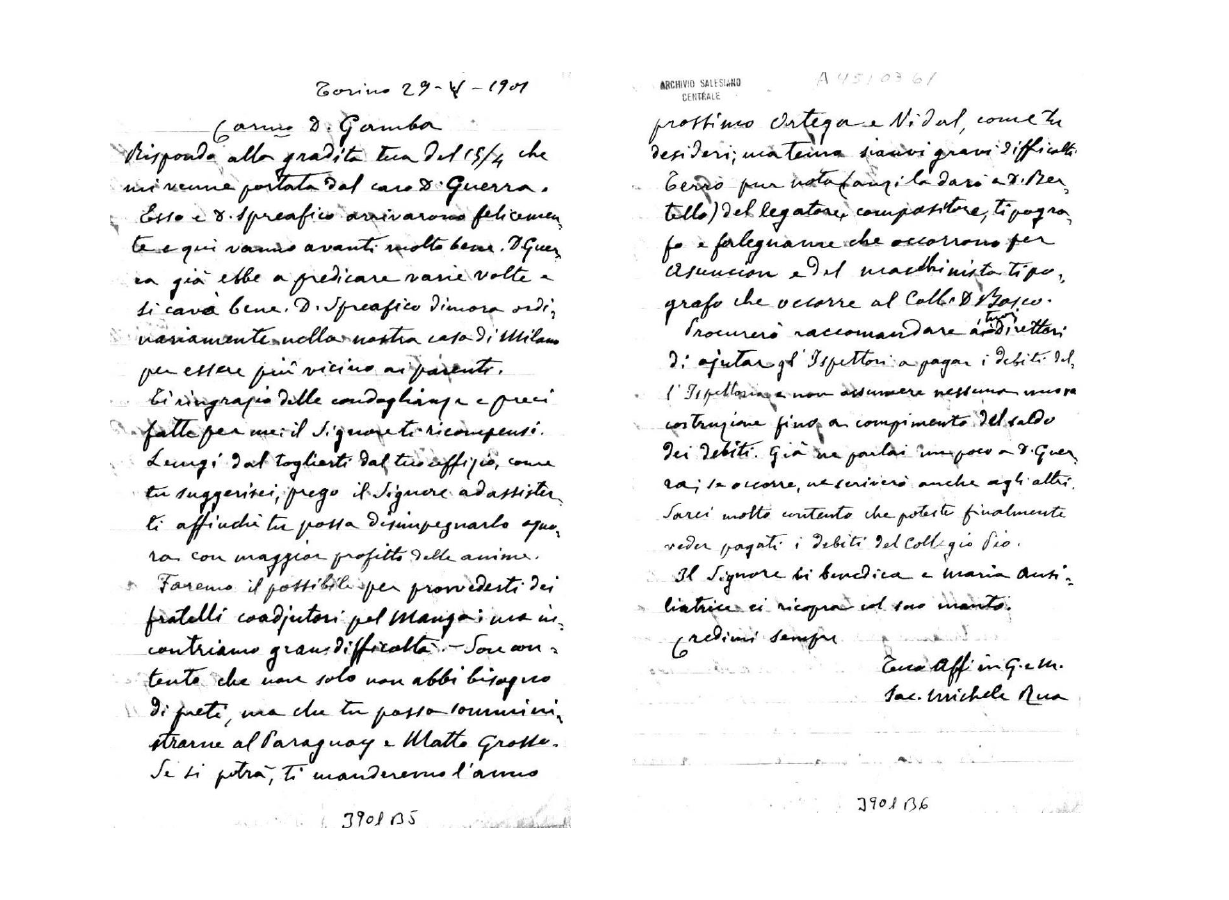 Torino 29-V-1901
Carmo D. Gamba
Rispondo alla gradita tua del 15/4 che
mi venne portata dal caro D. Guerra.
Esso e D. Spreafico arrivarono felicemen,
te e qui vanno avanti molto bene. D Guer,
ra già ebbe a predicare varie volte e
si cava bene. D. Spreafico dimora ordi,
nariamente nella nostra casa di Milano
per essere più vicino ai parenti.
Ti ringrazio delle condoglianze e preci
fatte per me: il Signore ti ricompensi.
Lungi dal toglierti dal tuo uffizio, come
tu suggerisci, prego il Signore ad assister,
ti affinchè tu possa disimpegnarlo ogno,
ra con maggior profitto delle anime.
Faremo il possibile per provvederti dei
fratelli coadjutori pel Manga: ma in,
contriamo gran difficoltà. - Son con,
tento che non solo non abbi bisogno
di preti, ma che tu possa sommini,
strarne al Paraguay e Matto Grosso.
Se si potrà, ti manderemo l'anno
3901 B5
ARCHIVIO SALESIANO
CENTRALE
A 4510361
prossimo Ortega e Vidal, come tu
desideri; ma temo sianvi gravi difficoltà.
Terrò pur nota (anzi la darò a D. Ber,
tello) del legatore, compositore, tipogra,
fo e falegname che occorrono per
Asuncion e del macchinista tipo,
grafo che occorre al Coll. D Bosco.
Procurerò raccomandare ai tuoi direttori
di ajutar gl' Ispettori a pagar i debiti del,
l' Ispettoria e non assumere nessuna nuova
costruzione fino a compimento del saldo
dei debiti. Già ne parlai un poco a D. Guer,
ra; se occorre, ne scriverò anche agli altri.
Sarei molto contento che poteste finalmente
veder pagati i debiti del Collegio Pio.
Il Signore ti benedica e Maria Ausi,
liatrice ci ricopra col suo manto.
Credimi sempre
Tuo Aff in G. e M.
Sac. Michele Rua
3901 B6